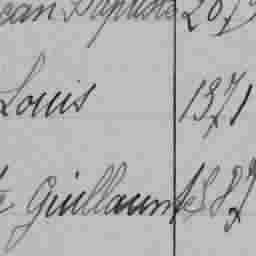 Jean Baptiste 207
Louis 1371
Guillaume 587